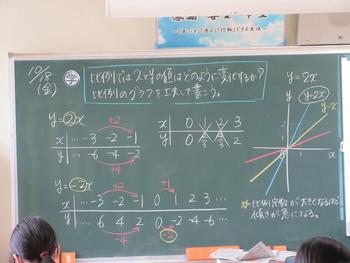 〜
「行動」できる生徒〜
10/8
(金)
学
比例ではxとyの値はどのように変化するか?
比例のグラフを工夫して書こう。
y=2x
+2
x … -3 -2 -1
y … -6 -4 -2
+4
x 0 1 2 3
y 0
2
y=-2x
+2
+1
x … -3 -2 -1 0 1 2 3 …
y … 6 4 2 0 -2 -4 -6 …
-4
-2
y=2x
y
y=2x
y=x
x
☆比例定数が大きくなるほど
傾きが急になる。